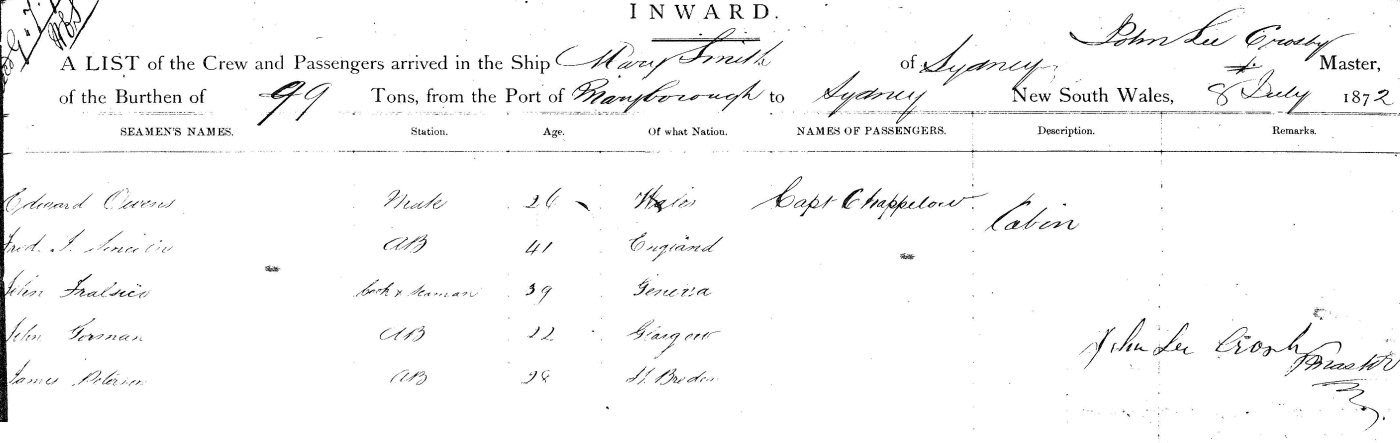 INWARD.
A LIST of the Crew and Passengers arrived in the Ship Mary Smith of Sydney, John Lee Crosby Master,
of the Burthen of 99 Tons, from the Port of Maryborough to Sydney New South Wales, 8 July 1872
SEAMEN'S NAMES. Station. Age. Of what Nation. NAMES OF PASSENGERS. Description. Remarks.
Edward Owens Mate 26 Wales Capt Chappelow Cabin
Fred. AB 41 England
John Cook & Seaman 39
John Forman AB 22 Glasgow
James AB 28
John Lee Crosby Master